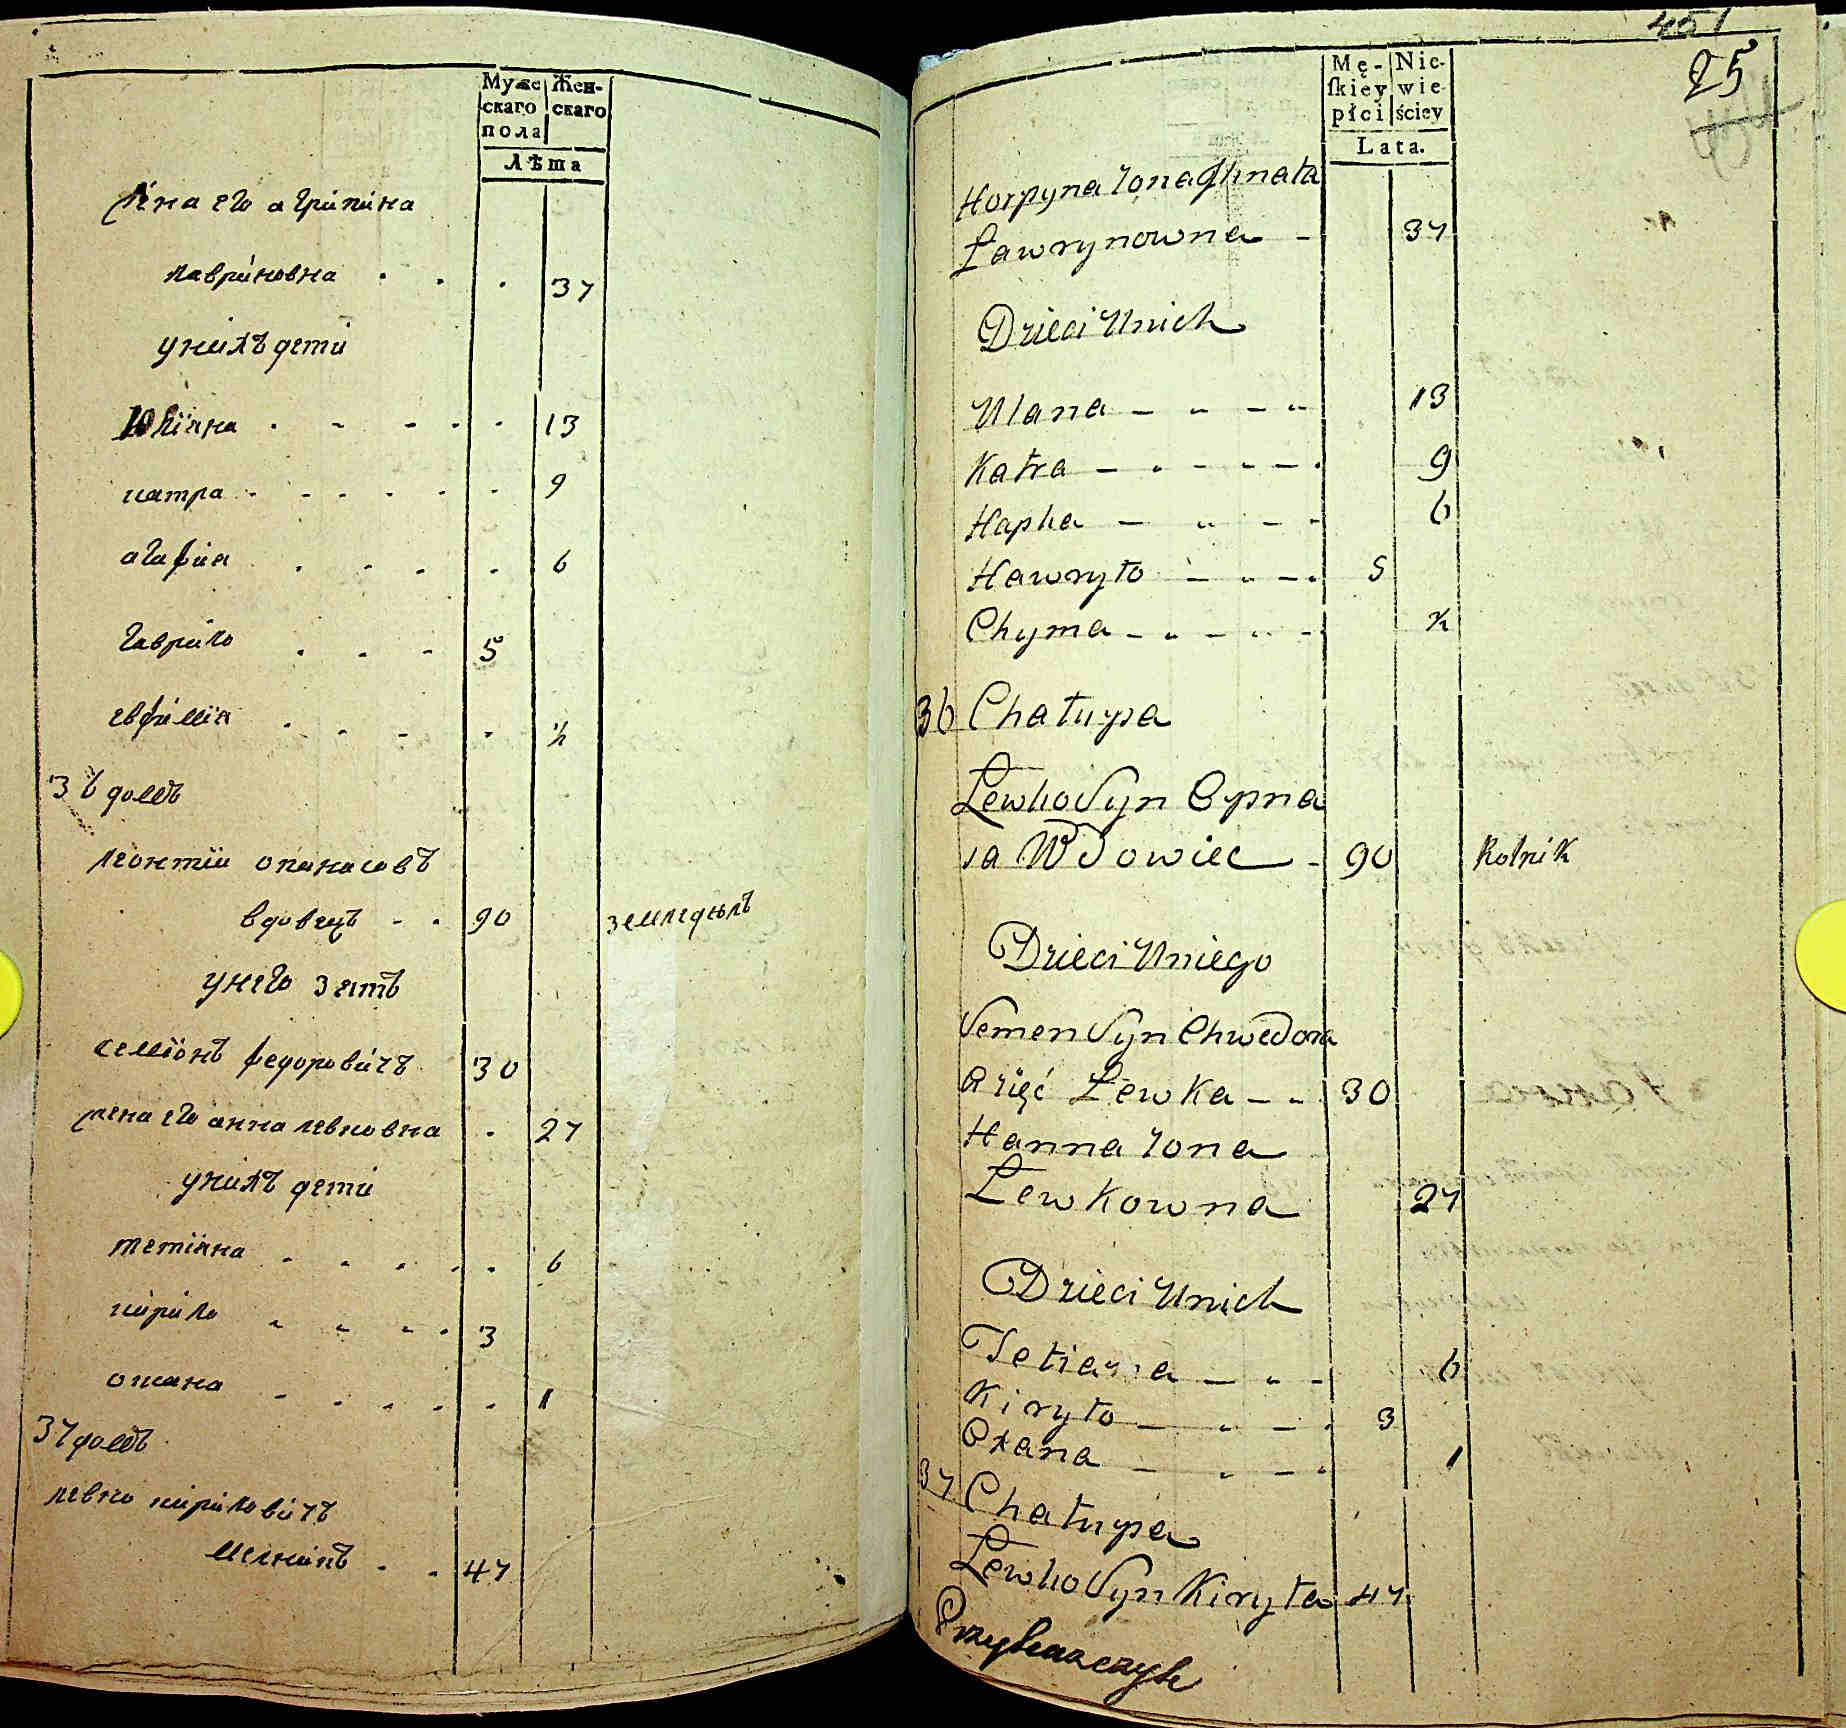 Муже
скаго
пола
Жен-
скаго
Лѣта
жена его агрипина
лавриновна 37
унихъ дети
Юліяна 13
катра 9
агафия 6
гаврило 5
евфимія ½
36 домъ
леонтіи опанасовъ
вдовецъ 90 земледѣлъ
унего зять
семіонъ федоровичъ 30
жена его анна левковна 27
унихъ дети
тетіяна 6
кирило 3
оксана 1
37 домъ
левко кириловичъ
мелникъ 47
451
25
Mę-
ſkiey
płci
Nie-
wie-
ściey
Lata.
Horpyna żona Ihnata
Ławrynowna 37
Dzieci Unich
Ulana 13
Katra 9
Hapka 6
Hawryło 5
Chyma ½
36 Chałupa
Lewko Syn Opna
sa Wdowiec 90 Rolnik
Dzieci Uniego
Semen Syn Chwedora
a zięć Lewka 30
Hanna żona
Lewkowna 27
Dzieci Unich
Tetiana 6
Kiryło 3
Oxana 1
37 Chałupa
Lewko Syn Kiryła 47